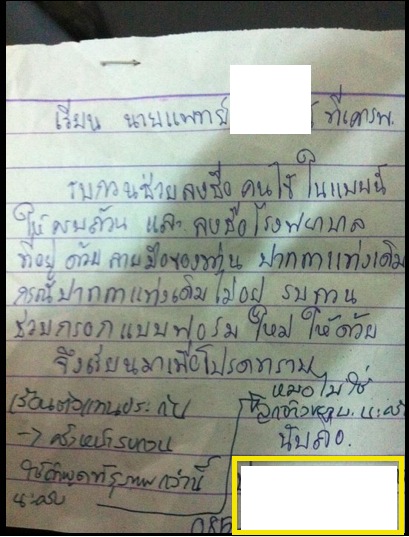 เรียน นายแพทย์ ที่เคารพ.
รบกวนช่วยลงชื่อ คนไข้ ในแบบนี้
ให้ครบถ้วน และ ลงชื่อโรงพยาบาล
ที่อยู่ ด้วย ลายมือของท่าน ปากกาแท่งเดิม
กรณีปากกาแท่งเดิมไม่อยู่ รบกวน
ช่วยกรอกแบบฟอร์มใหม่ ให้ด้วย
จึงเรียนมาเพื่อโปรดทราบ
นับถือ.
เรียนตัวแทนประกัน
→ ครั้งหน้ารบกวน
ใช้คำพูดที่สุภาพกว่านี้
นะครับ
หมอไม่ใช่
ลูกจ้าง นะครับ
085